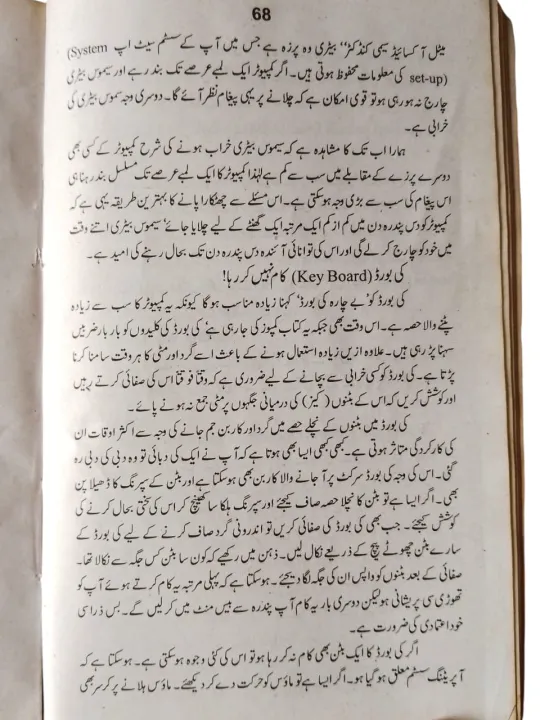 68
میٹل آکسائیڈ سیمی کنڈکٹر‘‘ بیٹری وہ پرزہ ہے جس میں آپ کے سسٹم سیٹ اپ (System
set-up) کی معلومات محفوظ ہوتی ہیں۔ اگر کمپیوٹر ایک لمبے عرصے تک بند رہے اور سیموس بیٹری
چارج نہ ہو رہی ہو تو قوی امکان ہے کہ چلانے پر یہی پیغام نظر آئے گا۔ دوسری وجہ سموس بیٹری کی
خرابی ہے۔
ہمارا اب تک کا مشاہدہ ہے کہ سیموس بیٹری خراب ہونے کی شرح کمپیوٹر کے کسی بھی
دوسرے پرزے کے مقابلے میں سب سے کم ہے لہٰذا کمپیوٹر کا ایک لمبے عرصے تک مسلسل بند رہنا ہی
اس پیغام کی سب سے بڑی وجہ ہو سکتی ہے۔ اس مسئلے سے چھٹکارا پانے کا بہترین طریقہ یہی ہے کہ
کمپیوٹر کو دس پندرہ دن میں کم از کم ایک مرتبہ ایک گھنٹے کے لیے چلایا جائے‘ سیموس بیٹری اتنے وقت
میں خود کو چارج کر لے گی اور اس کی توانائی آئندہ دس پندرہ دن تک بحال رہنے کی امید ہے۔
کی بورڈ (Key Board) کام نہیں کر رہا!
کی بورڈ کو ’بے چارہ کی بورڈ‘ کہنا زیادہ مناسب ہوگا کیونکہ یہ کمپیوٹر کا سب سے زیادہ
پٹنے والا حصہ ہے۔ اس وقت بھی جبکہ یہ کتاب کمپوز کی جا رہی ہے‘ کی بورڈ کی کلیدوں کو بار بار ضربیں
سہنا پڑ رہی ہیں۔ علاوہ ازیں زیادہ استعمال ہونے کے باعث اسے گرد اور مٹی کا ہر وقت سامنا کرنا
پڑتا ہے۔ کی بورڈ کو کسی خرابی سے بچانے کے لیے ضروری ہے کہ وقتاً فوقتاً اس کی صفائی کرتے رہیں
اور کوشش کریں کہ اس کے بٹنوں (کیز) کی درمیانی جگہوں پر مٹی جمع نہ ہونے پائے۔
کی بورڈ میں بٹنوں کے نچلے حصے میں گرد اور کاربن جم جانے کی وجہ سے اکثر اوقات ان
کی کارکردگی متاثر ہوتی ہے۔ کبھی کبھی ایسا بھی ہوتا ہے کہ آپ نے ایک کی دبائی تو وہ دبی کی دبی رہ
گئی۔ اس کی وجہ کی بورڈ سرکٹ پر آ جانے والا کاربن بھی ہو سکتا ہے اور بٹن کے سپرنگ کا ڈھیلا پن
بھی۔ اگر ایسا ہے تو بٹن کا نچلا حصہ صاف کیجئے اور سپرنگ ہلکا سا کھینچ کر اس کی سختی بحال کرنے کی
کوشش کیجئے۔ جب بھی کی بورڈ کی صفائی کریں تو اندرونی گرد صاف کرنے کے لیے کی بورڈ کے
سارے بٹن چھوٹے پیچ کے ذریعے نکال لیں۔ ذہن میں رکھیے کہ کون سا بٹن کس جگہ سے نکالا تھا۔
صفائی کے بعد بٹنوں کو واپس ان کی جگہ لگا دیجئے۔ ہو سکتا ہے کہ پہلی مرتبہ یہ کام کرتے ہوئے آپ کو
تھوڑی سی پریشانی ہو لیکن دوسری بار یہ کام آپ پندرہ سے بیس منٹ میں کر لیں گے۔ بس ذرا سی
خود اعتمادی کی ضرورت ہے۔
اگر کی بورڈ کا ایک بٹن بھی کام نہ کر رہا ہو تو اس کی کئی وجوہ ہو سکتی ہے۔ ہو سکتا ہے کہ
آپریٹنگ سسٹم معلق ہو گیا ہو۔ اگر ایسا ہے تو ماؤس کو حرکت دے کر دیکھئے۔ ماؤس ہلانے پر کرسر بھی